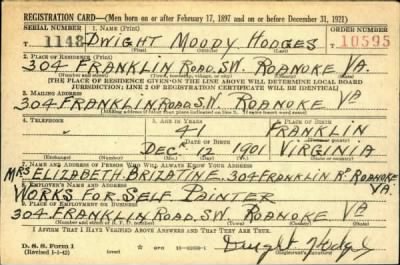 REGISTRATION CARD—(Men born on or after February 17, 1897 and on or before December 31, 1921)
SERIAL NUMBER 1. NAME (Print) ORDER NUMBER
T 1148 DWIGHT MOODY HODGES 10595
(First) (Middle) (Last)
2. PLACE OF RESIDENCE (Print)
304 FRANKLIN ROAD, SW. ROANOKE VA.
(Number and street) (Town, township, village, or city) (County) (State)
[THE PLACE OF RESIDENCE GIVEN ON THE LINE ABOVE WILL DETERMINE LOCAL BOARD
JURISDICTION; LINE 2 OF REGISTRATION CERTIFICATE WILL BE IDENTICAL]
3. MAILING ADDRESS
304 FRANKLIN ROAD S.W. ROANOKE VA
[Mailing address if other than place indicated on line 2. If same insert word same]
4. TELEPHONE 5. AGE IN YEARS
41 FRANKLIN
DATE OF BIRTH
DEC. 12 1901 VIRGINIA
(Exchange) (Number) (Mo.) (Day) (Yr.) (State or country)
7. NAME AND ADDRESS OF PERSON WHO WILL ALWAYS KNOW YOUR ADDRESS
MRS ELIZABETH BRIZATINE. 304 FRANKLIN RD ROANOKE VA.
8. EMPLOYER'S NAME AND ADDRESS
WORKS FOR SELF PAINTER
9. PLACE OF EMPLOYMENT OR BUSINESS
304 FRANKLIN ROAD, SW. ROANOKE VA
(Number and street or R. F. D. number) (Town) (County) (State)
I AFFIRM THAT I HAVE VERIFIED ABOVE ANSWERS AND THAT THEY ARE TRUE.
D. S. S. Form 1
(Revised 1-1-42) Dwight Hodges
(Registrant's signature)